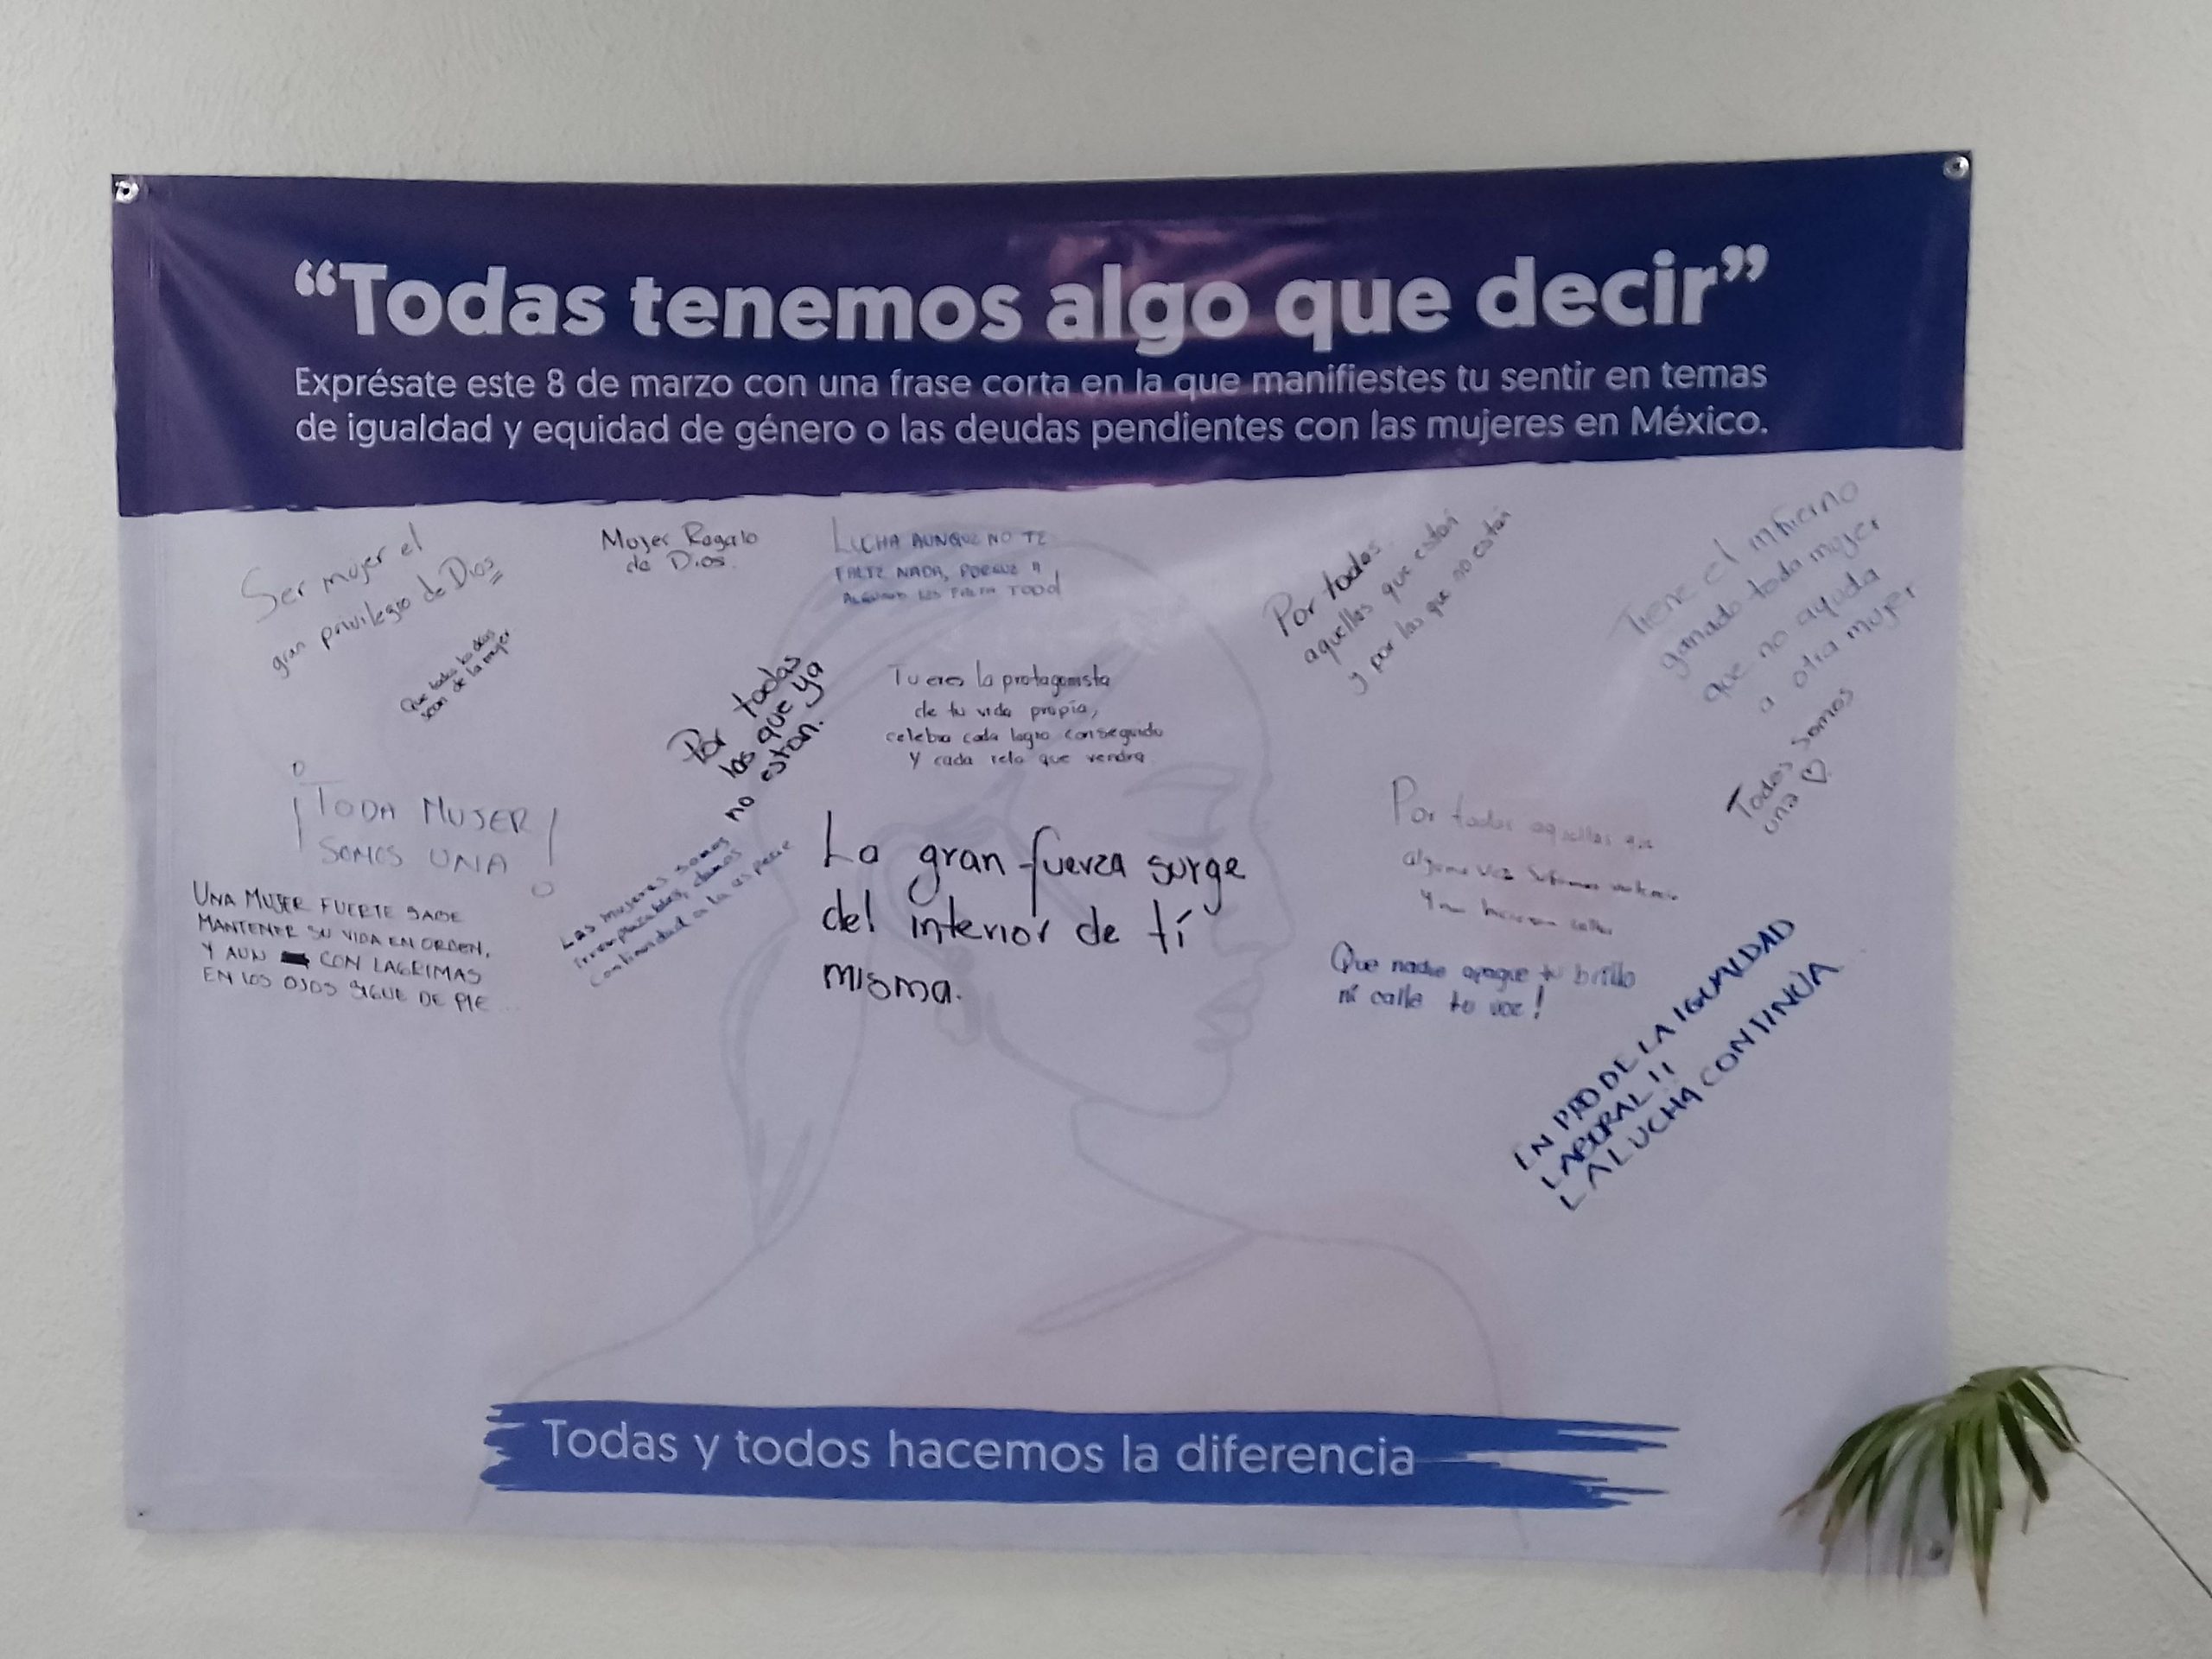 “Todas tenemos algo que decir”
Exprésate este 8 de marzo con una frase corta en la que manifiestes tu sentir en temas
de igualdad y equidad de género o las deudas pendientes con las mujeres en México.
Ser mujer el
gran privilegio de Dios
Mujer Regalo
de Dios.
LUCHA AUNQUE NO TE
FALTE NADA, PORQUE A
ALGUNOS LES FALTA TODO!
Por todas
aquellas que están
y por las que no están
Tiene el infierno
ganado toda mujer
que no ayuda
a otra mujer
Que todos los días
sean de la mujer
Por todas
las que ya
no estan.
Tu eres la protagonista
de tu vida propia,
celebra cada logro conseguido
y cada reto que vendra
Todas somos
una ♡
¡TODA MUJER
SOMOS UNA!
Por todas aquellas que
alguna vez
callar
UNA MUJER FUERTE SABE
MANTENER SU VIDA EN ORDEN,
Y AUN CON LAGRIMAS
EN LOS OJOS SIGUE DE PIE...
Las mujeres somos
irremplazables, damos
continuidad a la especie
La gran fuerza surge
del interior de tí
misma.
Que nadie apague tu brillo
ni calle tu voz!
EN PRO DE LA IGUALDAD
LABORAL !!
LA LUCHA CONTINÚA
Todas y todos hacemos la diferencia